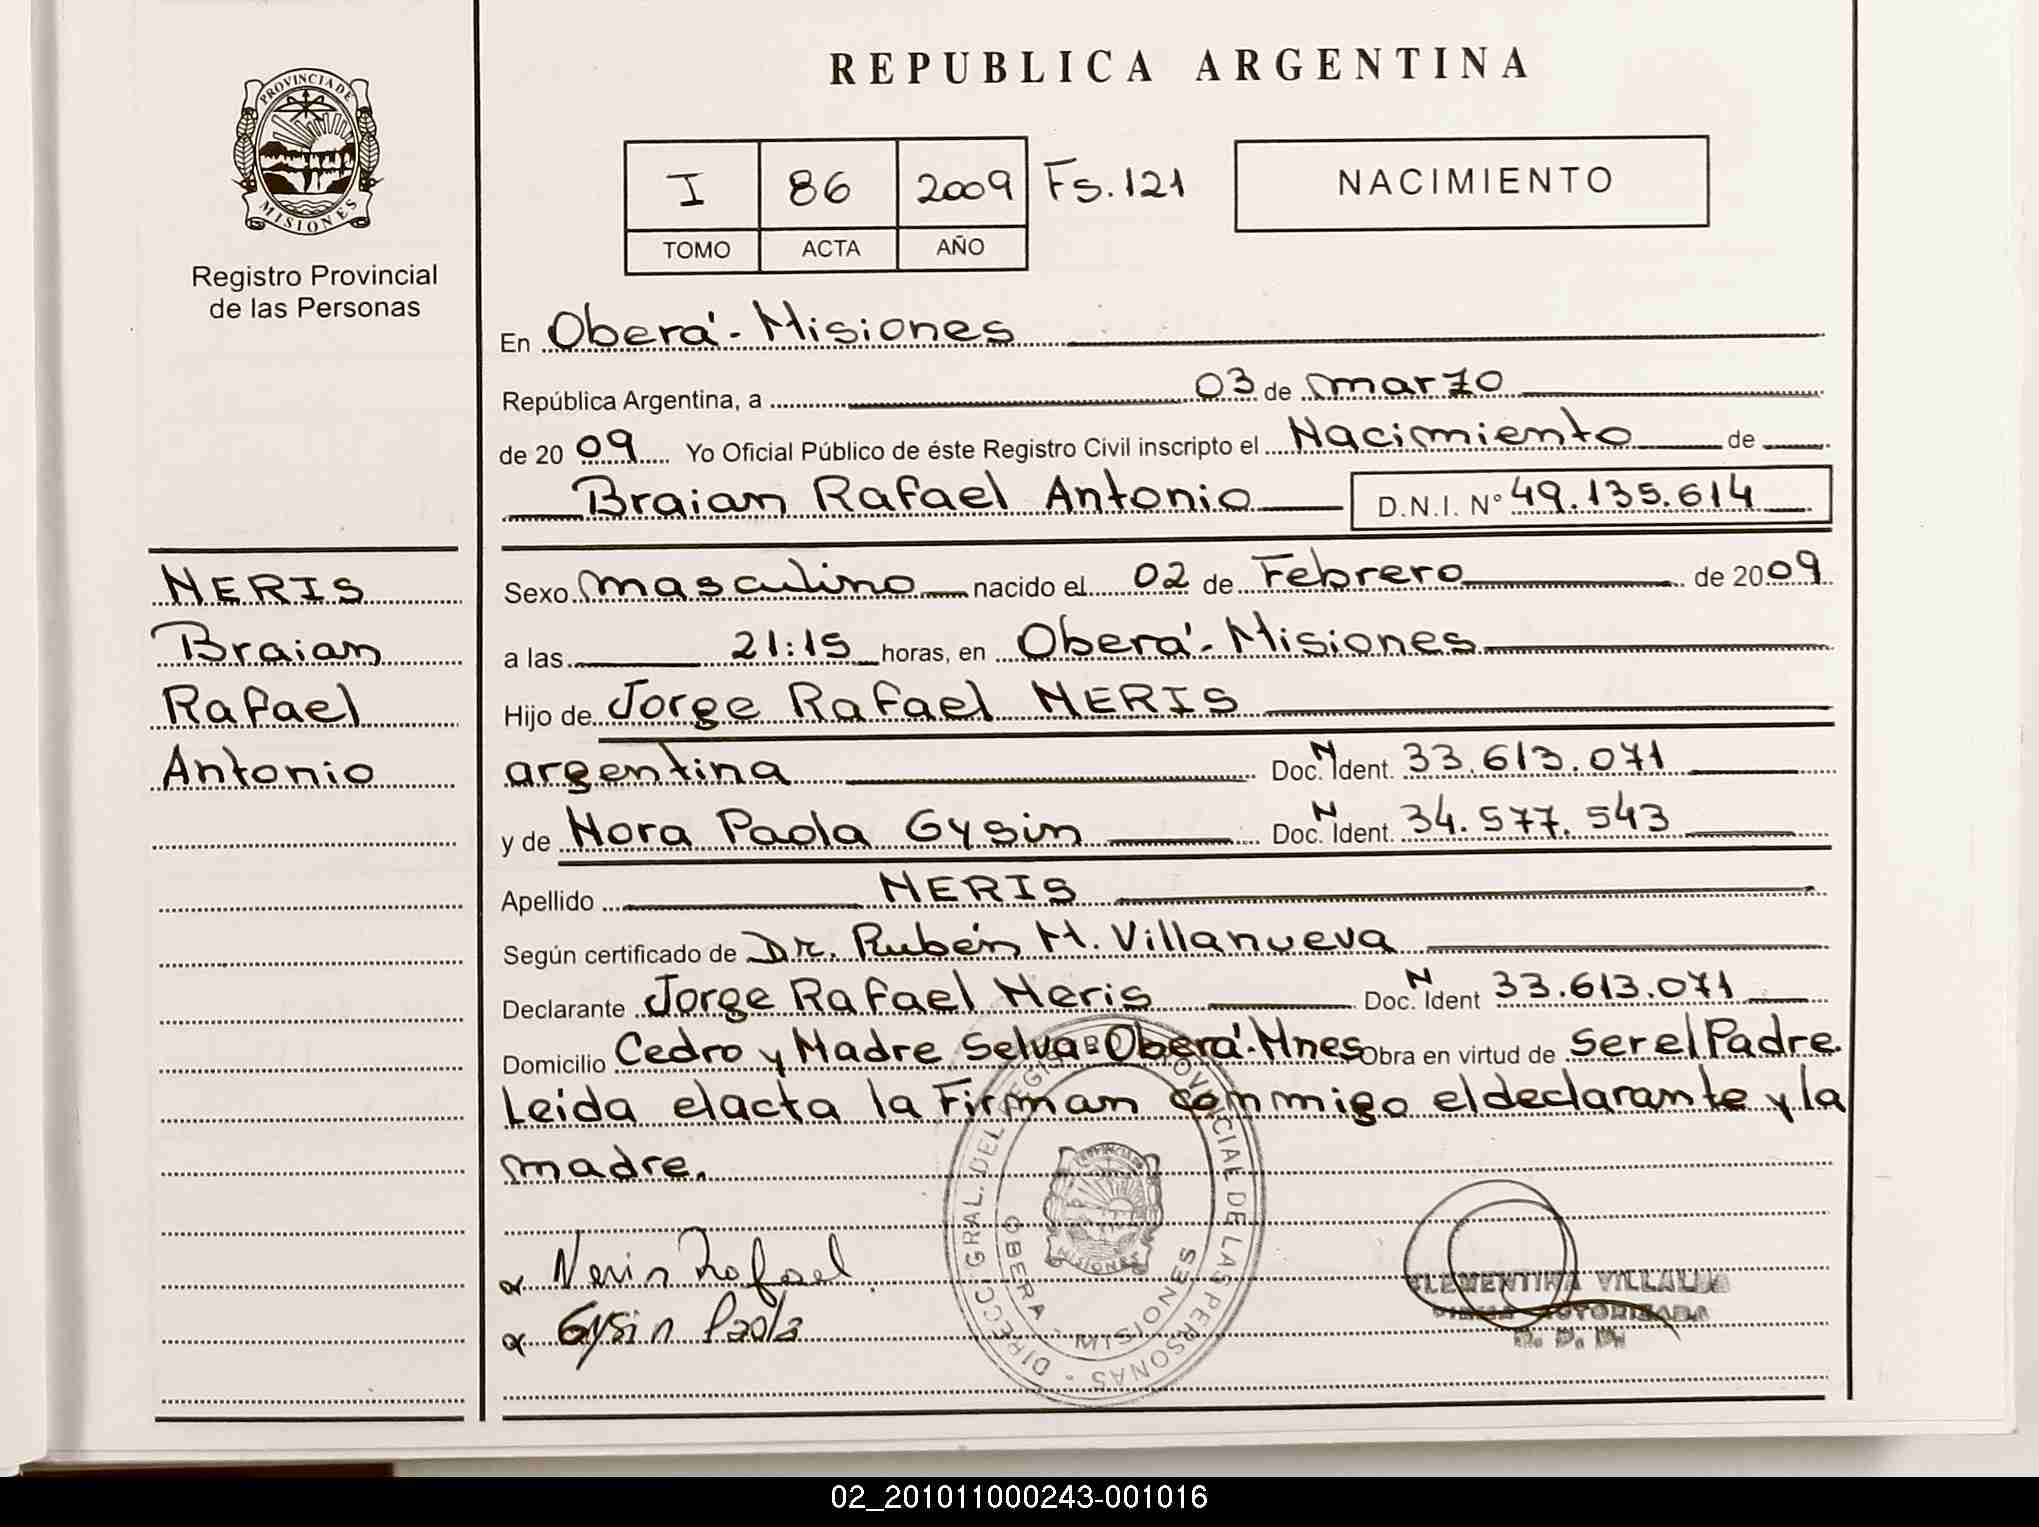 PROVINCIA DE
MISIONES
Registro Provincial
de las Personas
REPUBLICA ARGENTINA
I 86 2009 Fs. 121
TOMO ACTA AÑO
NACIMIENTO
En Oberá - Misiones
República Argentina, a 03 de marzo
de 2009 Yo Oficial Público de éste Registro Civil inscripto el Nacimiento de
Braian Rafael Antonio D.N.I. N° 49.135.614
NERIS
Braian
Rafael
Antonio
Sexo masculino nacido el 02 de Febrero de 2009
a las 21:15 horas, en Oberá - Misiones
Hijo de Jorge Rafael NERIS
argentina Doc. N Ident. 33.613.071
y de Nora Paola Gysin Doc. N Ident. 34.577.543
Apellido NERIS
Según certificado de Dr. Rubén M. Villanueva
Declarante Jorge Rafael Neris Doc. N Ident 33.613.071
Domicilio Cedro y Madre Selva - Oberá - Mnes Obra en virtud de Ser el Padre.
Leida el acta la Firman conmigo el declarante y la
madre.
Neris Rafael
Gysin Paola
DIRECC. GRAL. DEL REGISTRO PROVINCIAL DE LAS PERSONAS
OBERA - MISIONES
PROVINCIA DE
MISIONES
CLEMENTINA VILLALBA
FIRMA AUTORIZADA
02_201011000243-001016